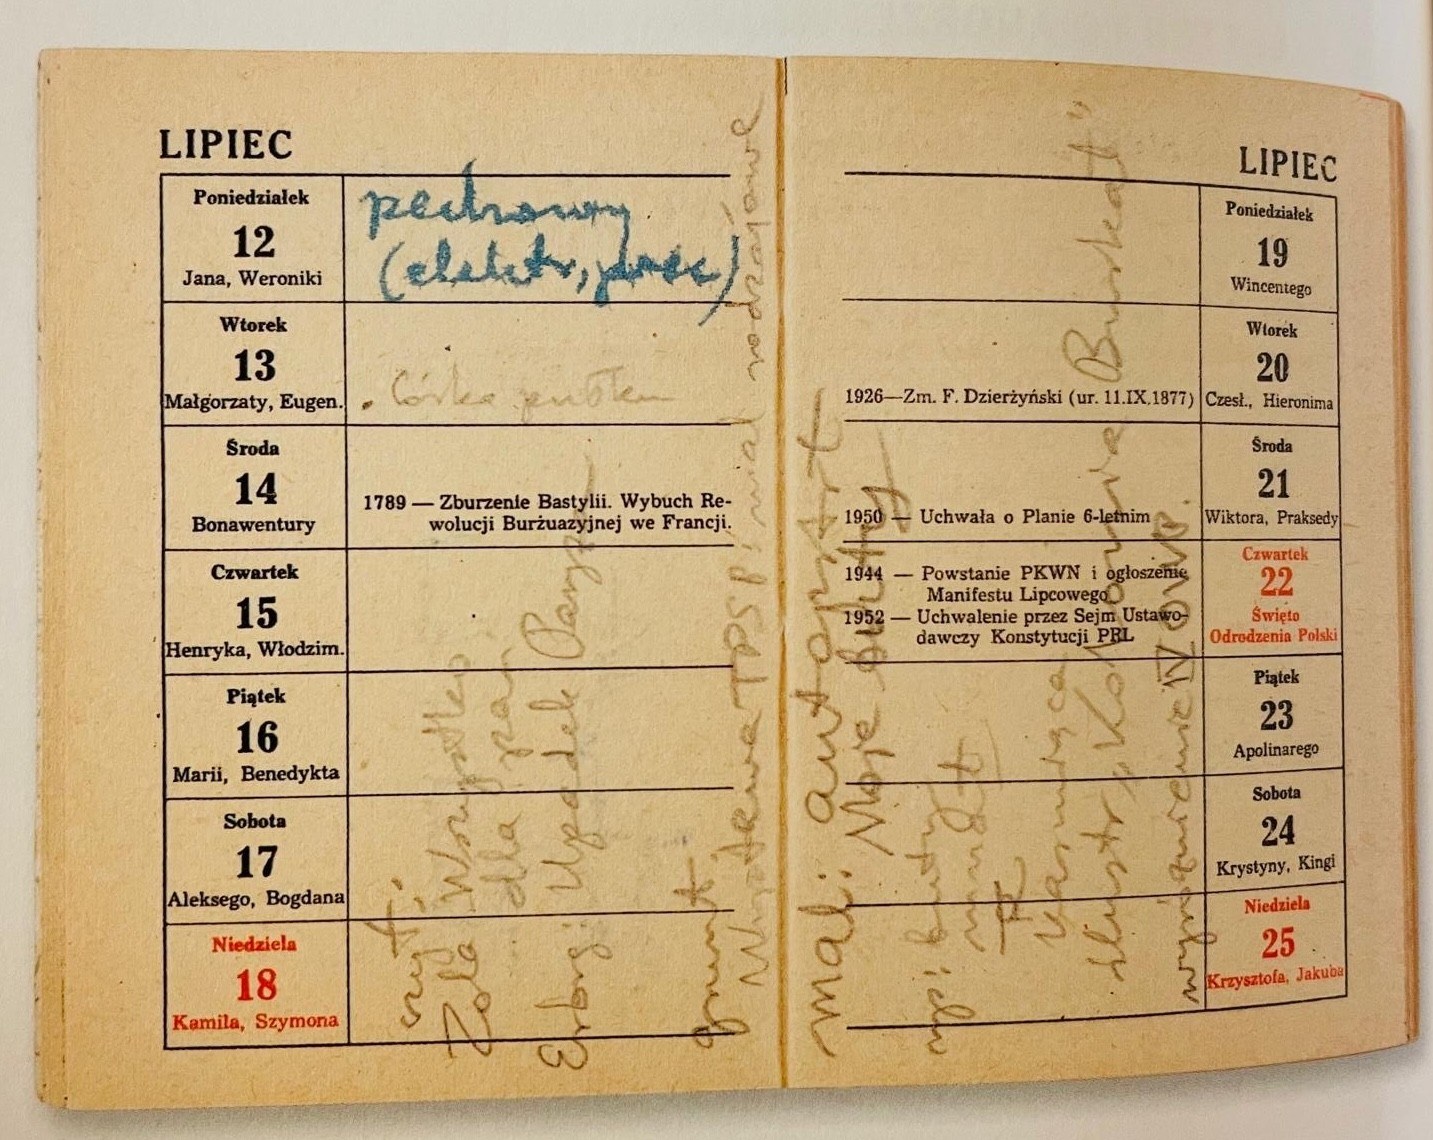 LIPIEC
Poniedziałek
12
Jana, Weroniki
pechowy
(elektr,
Wtorek
13
Małgorzaty, Eugen.
Córka pułku
Środa
14
Bonawentury
1789 — Zburzenie Bastylii. Wybuch Re-
wolucji Burżuazyjnej we Francji.
Czwartek
15
Henryka, Włodzim.
Piątek
16
Marii, Benedykta
Sobota
17
Aleksego, Bogdana
Niedziela
18
Kamila, Szymona
czyt:
Zola Wszystko
dla pań
Erbg. Upadek Paryża
grunt.
Wystawa TPSP i mal rodzajowe
LIPIEC
Poniedziałek
19
Wincentego
Wtorek
20
Czesł., Hieronima
1926—Zm. F. Dzierżyński (ur. 11.IX.1877)
Środa
21
Wiktora, Praksedy
1950 — Uchwała o Planie 6-letnim
Czwartek
22
Święto
Odrodzenia Polski
1944 — Powstanie PKWN i ogłoszenie
Manifestu Lipcowego
1952 — Uchwalenie przez Sejm Ustawo-
dawczy Konstytucji PRL
Piątek
23
Apolinarego
Sobota
24
Krystyny, Kingi
Niedziela
25
Krzysztofa, Jakuba
mal: autoportret
Moje buty
ilustr. „Konopnicka
IV OWP.